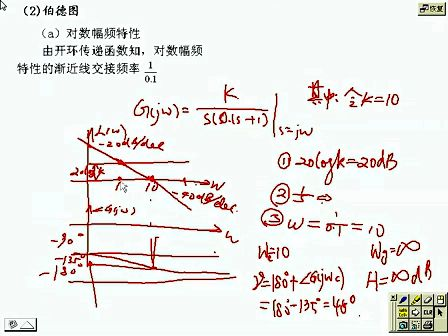 恢复
(2)伯德图
(a) 对数幅频特性
由开环传递函数知,对数幅频
特性的渐近线交接频率 1/0.1
G(jω) = K / S(0.1s+1) | s=jω
其中:令K=10
L(ω)
-20dB/dec
20logK
1 10 ω
-40dB/dec
∠G(jω)
ω
-90°
-135°
-180°
① 20logK=20dB
② 1/s ⇒
③ ω = 1/0.1 = 10
ωc=10 ωg=∞
γ=180°+∠G(jωc) H=∞dB
=180°-135°=45°